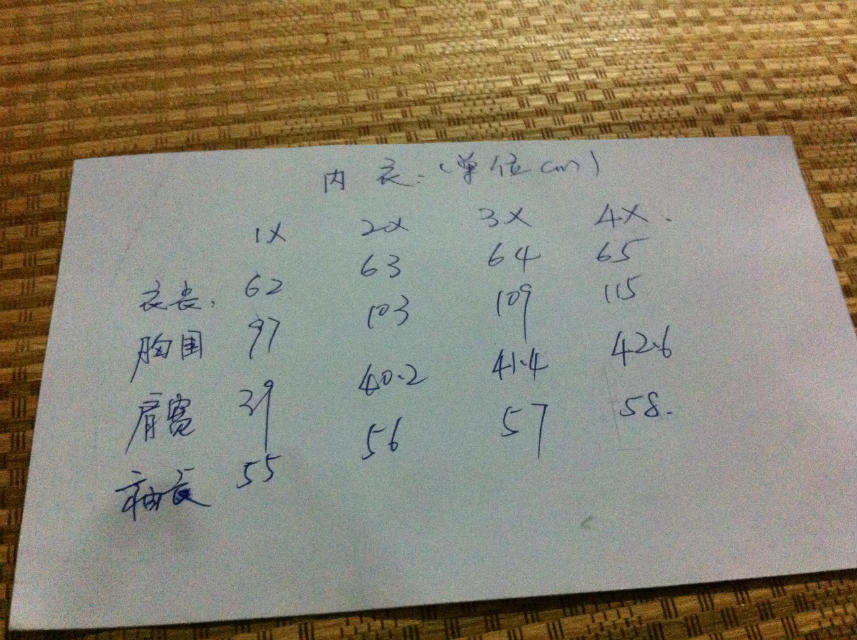 内衣:(单位cm)
1X 2X 3X 4X.
衣长. 62 63 64 65
胸围 97 103 109 115
肩宽 39 40.2 41.4 42.6
袖长 55 56 57 58.